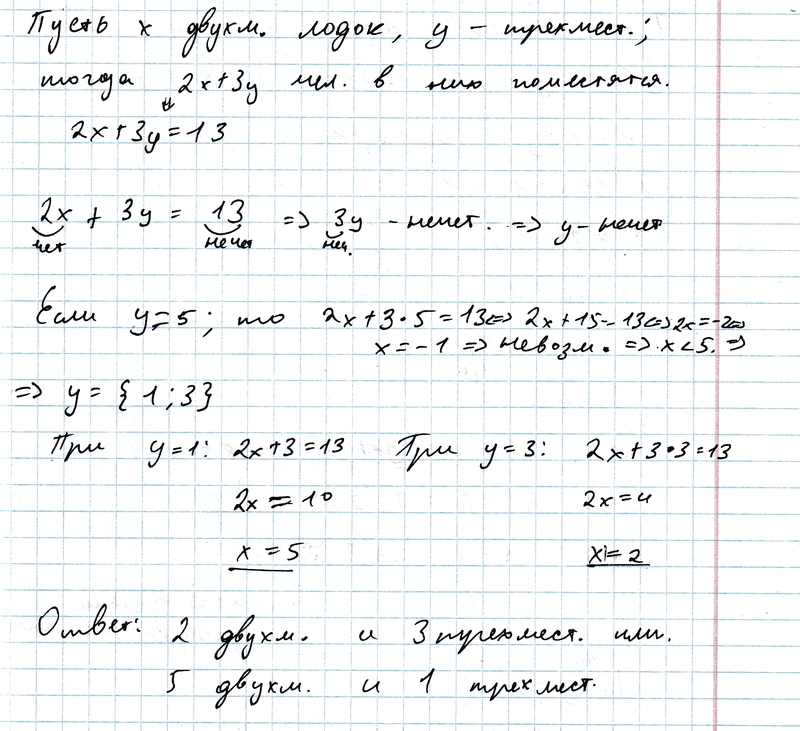 Пусть x двухм. лодок, y – трехмест.;
тогда 2x+3y чел. в них поместятся.
⇓
2x+3y=13
2x + 3y = 13 => 3y - нечет. => y - нечет
чет нечет неч.
Если y=5; то 2x+3·5=13<=> 2x+15=13<=>2x=-2<=>
x=-1 => невозм. => x<5. =>
=> y = {1;3}
При y=1: 2x+3=13 При y=3: 2x+3·3=13
2x=10 2x=4
x=5 x=2
Ответ: 2 двухм. и 3 трехмест. или.
5 двухм. и 1 трехмест.